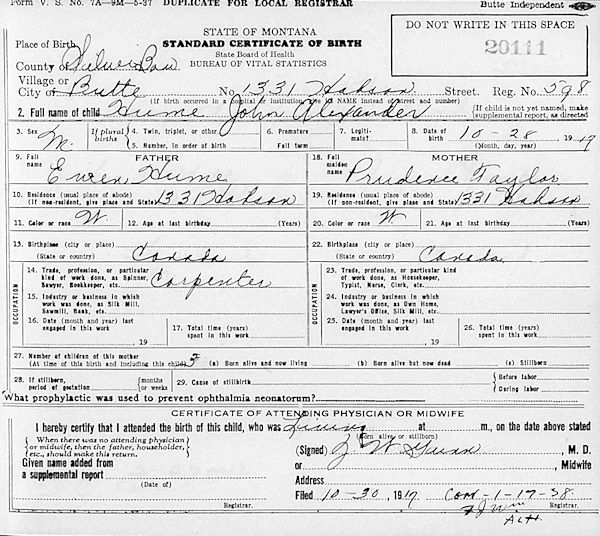 Form V. S. No. 7A—9M—5-37 DUPLICATE FOR LOCAL REGISTRAR Butte Independent
STATE OF MONTANA
STANDARD CERTIFICATE OF BIRTH
State Board of Health
BUREAU OF VITAL STATISTICS
DO NOT WRITE IN THIS SPACE
20111
Place of Birth
County of Silver Bow
Village or
City of Butte No. 1331 Hobson Street. Reg. No. 598
(If birth occurred in a hospital or institution, give its NAME instead of street and number)
2. Full name of child Hume John Alexander
{If child is not yet named, make supplemental report, as directed
3. Sex M. If plural births { 4. Twin, triplet, or other 5. Number, in order of birth 6. Premature Full term 7. Legiti- mate? 8. Date of birth 10-28, 1917
(Month, day, year)
9. Full name FATHER Ewen Hume
18. Full maiden name MOTHER Prudence Taylor
10. Residence (usual place of abode) (If non-resident, give place and State) 1331 Hobson
19. Residence (usual place of abode) (If non-resident, give place and State) 1331 Hobson
11. Color or race W. 12. Age at last birthday (Years)
20. Color or race W. 21. Age at last birthday (Years)
13. Birthplace (city or place) (State or country) Canada
22. Birthplace (city or place) (State or country) Canada
OCCUPATION
14. Trade, profession, or particular kind of work done, as Spinner, Sawyer, Bookkeeper, etc. Carpenter
15. Industry or business in which work was done, as Silk Mill, Sawmill, Bank, etc.
16. Date (month and year) last engaged in this work , 19 17. Total time (years) spent in this work
OCCUPATION
23. Trade, profession, or particular kind of work done, as Housekeeper, Typist, Nurse, Clerk, etc.
24. Industry or business in which work was done, as Own Home, Lawyer's Office, Silk Mill, etc.
25. Date (month and year) last engaged in this work , 19 26. Total time (years) spent in this work
27. Number of children of this mother
(At time of this birth and including this child) (a) Born alive and now living (b) Born alive but now dead (c) Stillborn
28. If stillborn, period of gestation { months or weeks 29. Cause of stillbirth { Before labor During labor
What prophylactic was used to prevent ophthalmia neonatorum?
CERTIFICATE OF ATTENDING PHYSICIAN OR MIDWIFE
I hereby certify that I attended the birth of this child, who was Living at m., on the date above stated
(Born alive or stillborn)
{ When there was no attending physician or midwife, then the father, householder, etc., should make this return. }
(Signed) J. W. Gunn, M. D.
or , Midwife
Given name added from
a supplemental report
(Date of)
Address
Filed 10-30, 1917 Corr-1-17-38.
Registrar. Registrar.
ALH.